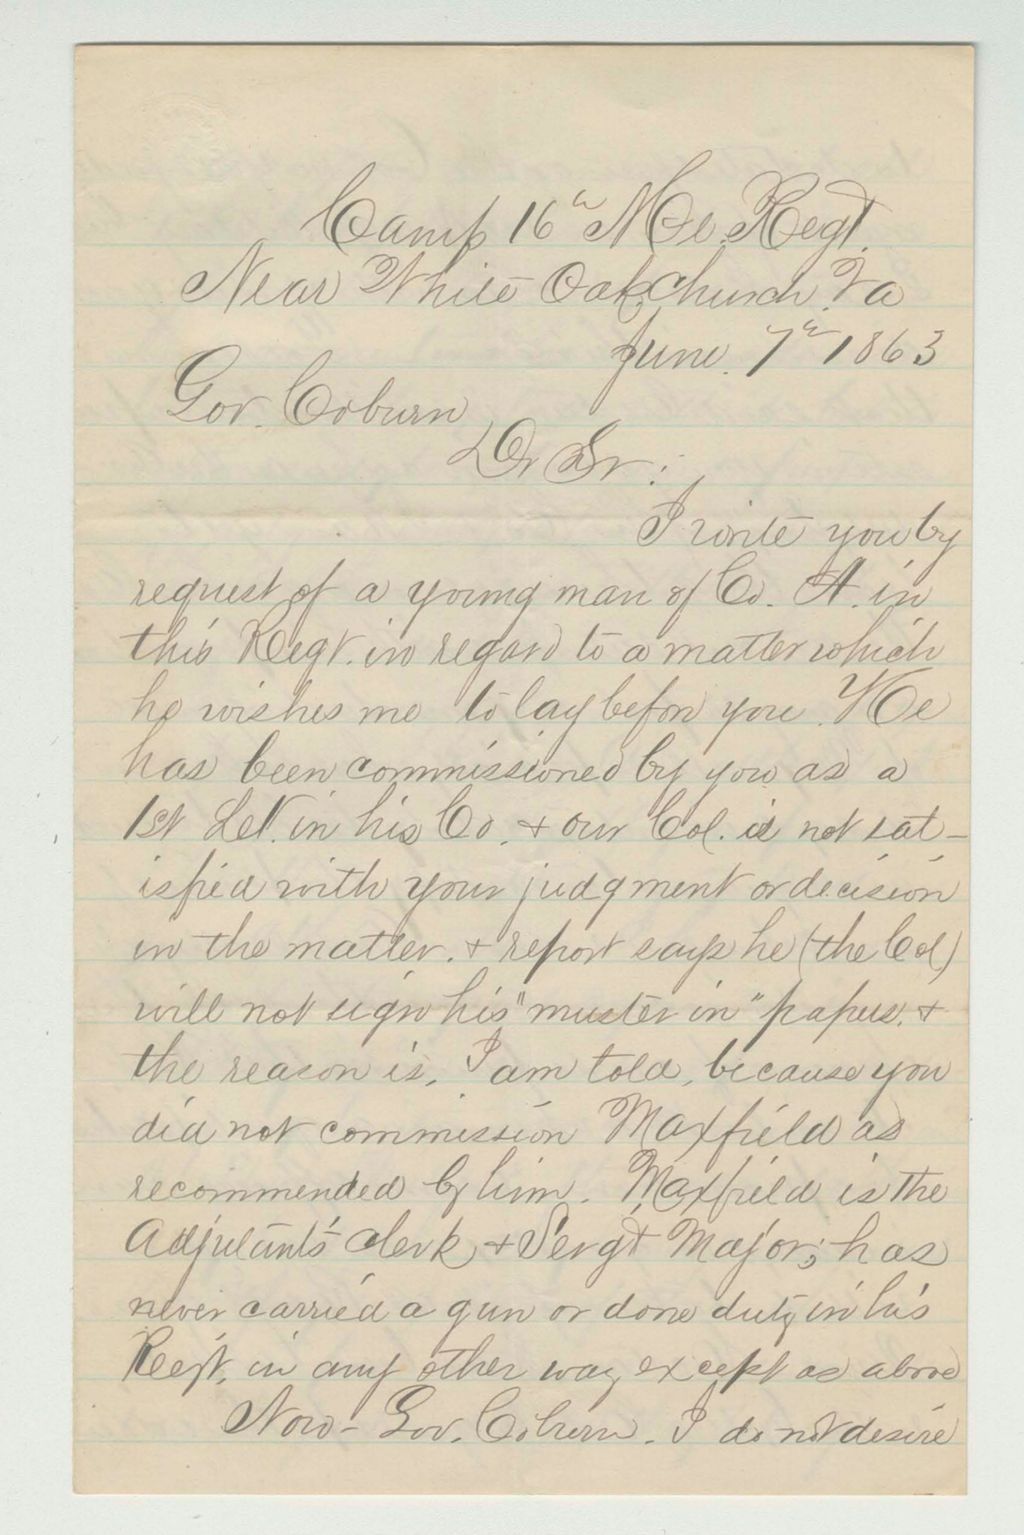 Camp 16th Me. Regt.
Near White Oak Church Va
June 7th 1863
Gov. Coburn
Dr Sir:
I write you by
request of a young man of Co. A. in
this Regt. in regard to a matter which
he wishes me to lay before you. He
has been commissioned by you as a
1st Let. in his Co. & our Col. is not sat-
isfied with your judgment or decision
in the matter. & report says he (the Col)
will not sign his "muster in" papers. &
the reason is, I am told, because you
did not commission Maxfield as
recommended by him. Maxfield is the
Adjutant's clerk & Sergt Major; has
never carried a gun or done duty in his
Regt. in any other way except as above
Now - Gov. Coburn. I do not desire